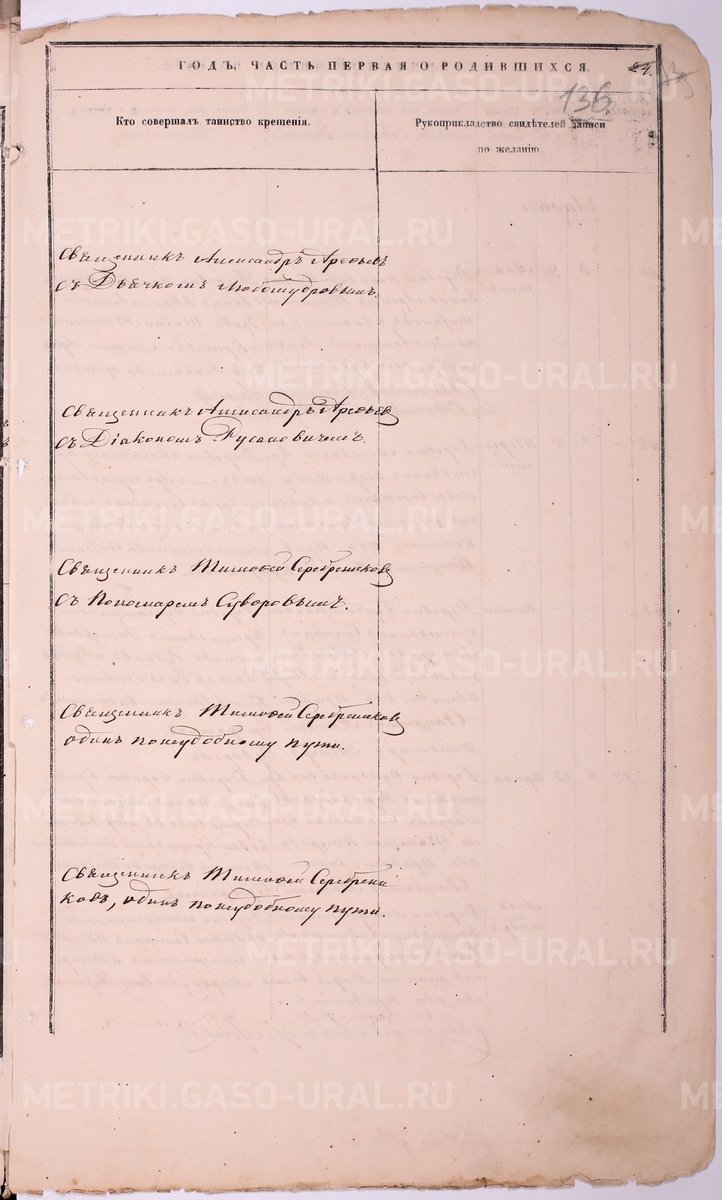 ГОДЪ, ЧАСТЬ ПЕРВАЯ О РОДИВШИХСЯ.
24.
136
Кто совершалъ таинство крещенія.
Рукоприкладство свидѣтелей записи
по желанію
Священникъ Александръ Арефьевъ
съ Дьячкомъ Любомудровымъ.
Священникъ Александръ Арефьев
съ Діакономъ Русановичемъ.
Священникъ Тимофей Серебрениковъ
съ Пономаремъ Суворовымъ.
Священникъ Тимофей Серебрениковъ
одинъ понеудобному пути.
Священникъ Тимофей Серебрени
ковъ, одинъ понеудобному пути.
METRIKI.GASO-URAL.RU